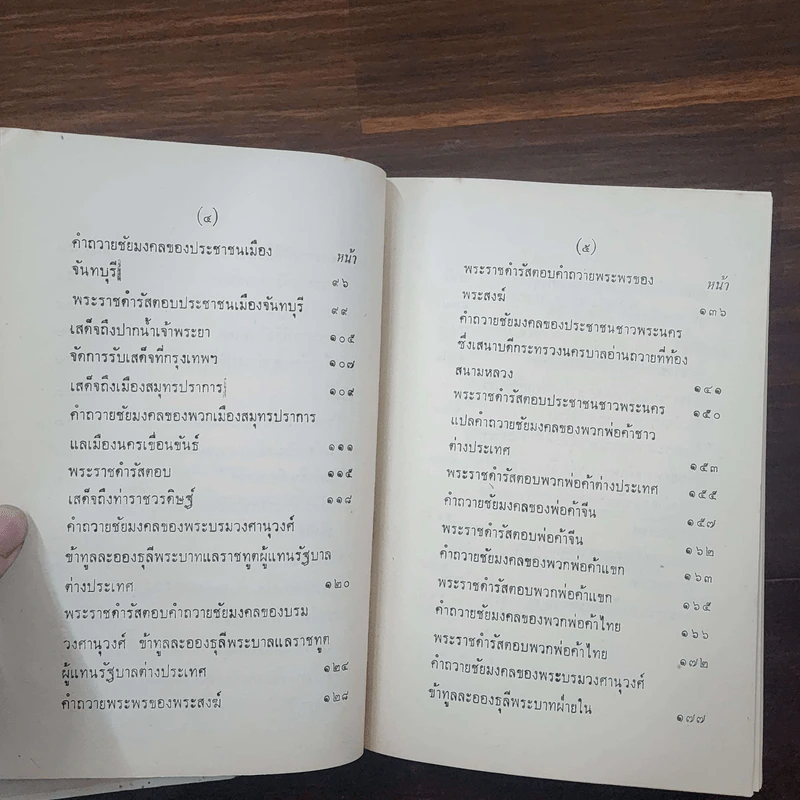 (๔)
หน้า
คำถวายชัยมงคลของประชาชนเมือง
จันทบุรี ๙๖
พระราชดำรัสตอบประชาชนเมืองจันทบุรี ๙๙
เสด็จถึงปากน้ำเจ้าพระยา ๑๐๕
จัดการรับเสด็จที่กรุงเทพฯ ๑๐๗
เสด็จถึงเมืองสมุทรปราการ ๑๐๙
คำถวายชัยมงคลของพวกเมืองสมุทรปราการ
แลเมืองนครเขื่อนขันธ์ ๑๑๑
พระราชดำรัสตอบ ๑๑๕
เสด็จถึงท่าราชวรดิษฐ์ ๑๑๘
คำถวายชัยมงคลของพระบรมวงศานุวงศ์
ข้าทูลละอองธุลีพระบาทแลราชทูตผู้แทนรัฐบาล
ต่างประเทศ ๑๒๐
พระราชดำรัสตอบคำถวายชัยมงคลของบรม
วงศานุวงศ์ ข้าทูลละอองธุลีพระบาลแลราชทูต
ผู้แทนรัฐบาลต่างประเทศ ๑๒๔
คำถวายพระพรของพระสงฆ์ ๑๒๘
(๕)
หน้า
พระราชดำรัสตอบคำถวายพระพรของ
พระสงฆ์ ๑๓๖
คำถวายชัยมงคลของประชาชนชาวพระนคร
ซึ่งเสนาบดีกระทรวงนครบาลอ่านถวายที่ท้อง
สนามหลวง ๑๔๑
พระราชดำรัสตอบประชาชนชาวพระนคร ๑๕๐
แปลคำถวายชัยมงคลของพวกพ่อค้าชาว
ต่างประเทศ ๑๕๓
พระราชดำรัสตอบพวกพ่อค้าต่างประเทศ ๑๕๕
คำถวายชัยมงคลของพ่อค้าจีน ๑๕๗
พระราชดำรัสตอบพ่อค้าจีน ๑๖๒
คำถวายชัยมงคลของพวกพ่อค้าแขก ๑๖๓
พระราชดำรัสตอบพวกพ่อค้าแขก ๑๖๕
คำถวายชัยมงคลของพวกพ่อค้าไทย ๑๖๖
พระราชดำรัสตอบพวกพ่อค้าไทย ๑๗๒
คำถวายชัยมงคลของพระบรมวงศานุวงศ์
ข้าทูลละอองธุลีพระบาทฝ่ายใน ๑๗๗